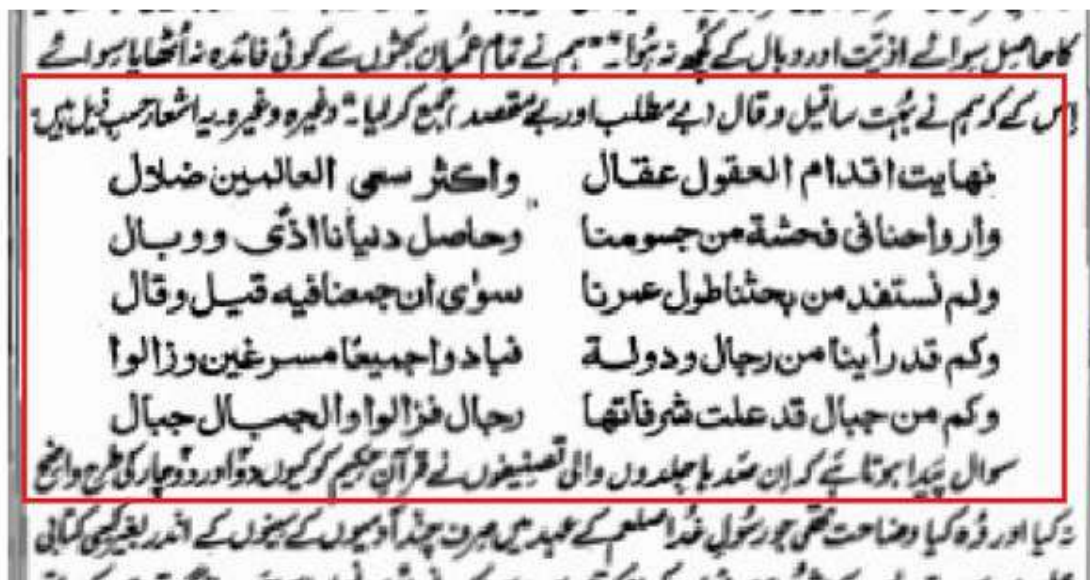 کا حاصل سوائے اذیّت اور وبال کے کچھ نہ ہُوا۔" "ہم نے تمام عمر ان بحثوں سے کوئی فائدہ نہ اُٹھایا سوائے
اِس کے کہ ہم نے بہت سا قیل و قال (بے مطلب اور بے مقصد) جمع کر لیا۔" وغیرہ وغیرہ۔ یہ اشعار حسبِ ذیل ہیں:
نهایت اقدام العقول عقال واکثر سعی العالمین ضلال
وارواحنا فی فحشة من جسومنا وحاصل دنیانا اذًی ووبال
ولم نستفد من بحثنا طول عمرنا سوٰی ان جمعنا فیه قیل وقال
وکم قد رأینا من رجال ودولة فبادوا جمیعًا مسرغین وزالوا
وکم من جبال قد علت شرفاتها رجال فزالوا والجبال جبال
سوال پیدا ہوتا ہے کہ اِن صدہا جلدوں والی تصنیفوں نے قرآنِ حکیم کو کیوں دو اور دو چار کی طرح واضح
نہ کیا اور وُہ کیا وضاحت تھی جو رسُولِ خُدا صلعم کے عہد میں صِرف چند آدمیوں کے سینوں کے اندر بغیر کسی کتابی